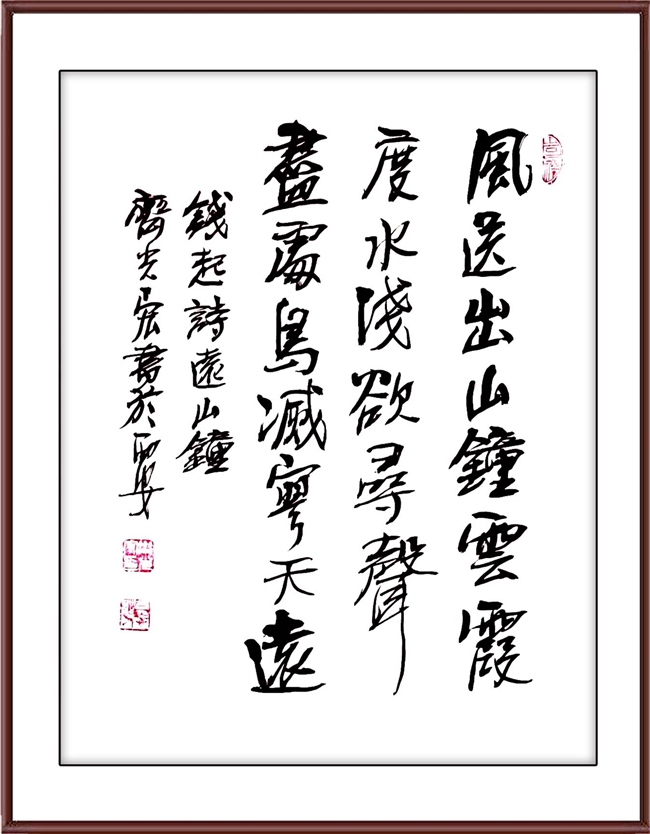 風送出山鐘雲霞
度水淺欲尋聲
盡處鳥滅寥天遠
錢起詩遠山鐘
齊光宏書於西安